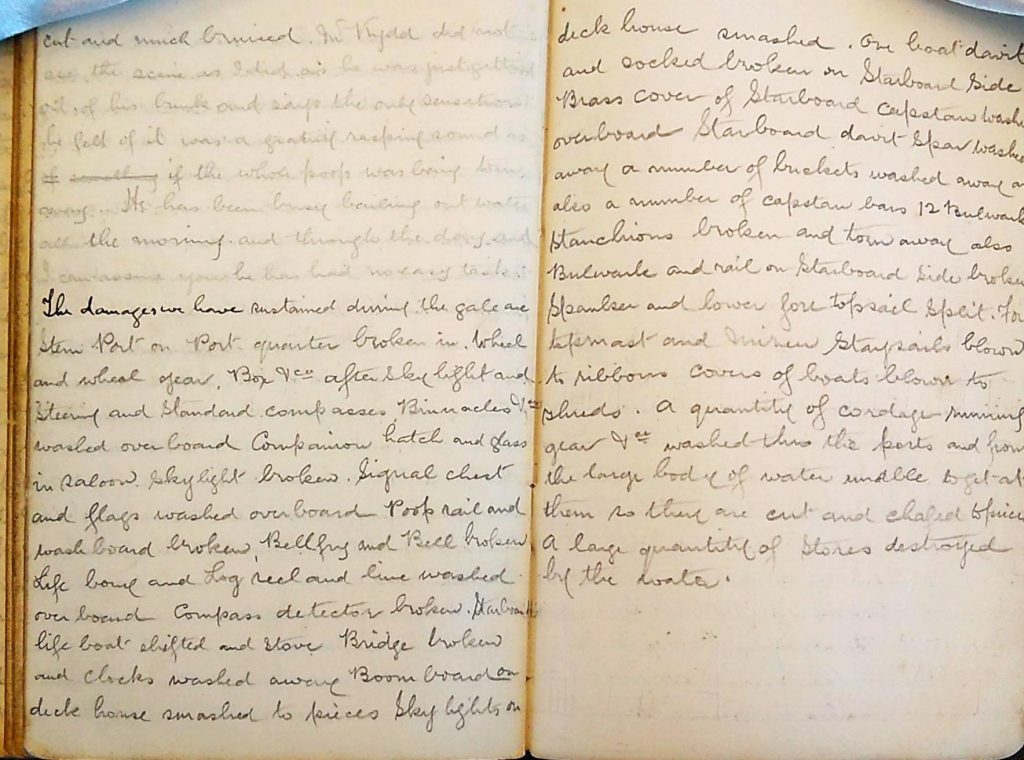 cut and much bruised. Mr Kydd did not
see the scene as I did as he was just getting
out of his bunk and says the only sensation
he felt of it was a grating rasping sound as
if something if the whole poop was being torn
away. He has been busy bailing out water
all the morning and through the day and
I can assure you he has had no easy task.
The damages we have sustained during the gale are
Stern Port on Port quarter broken in. Wheel
and wheel gear, Box &c after Sky light and
Steering and Standard compasses Binnacles &c
washed overboard Companion hatch and glass
in saloon Skylight broken. Signal chest
and flags washed overboard Poop rail and
wash board broken, Bellfry and Bell broken
Life bouy and Log reel and line washed
over board Compass detector broken. Starboard
life boat shifted and stove Bridge broken
and clocks washed away Boom board on
deck house smashed to pieces Sky lights on
deck house smashed. One boat davit
and socked broken on Starboard Side
Brass cover of Starboard capstan washed
overboard Starboard davit Spar washed
away a number of buckets washed away
also a number of capstan bars 12 Bulwark
Stanchions broken and torn away also
Bulwark and rail on Starboard Side broken
Spanker and lower fore topsail Split. For
topmast and Mizen Staysails blown
to ribbons covers of boats blown to
shreds. A quantity of cordage running
gear &c washed thro the ports and from
the large body of water unable to get at
them so they are cut and chafed to pieces
A large quantity of Stores destroyed
by the water.